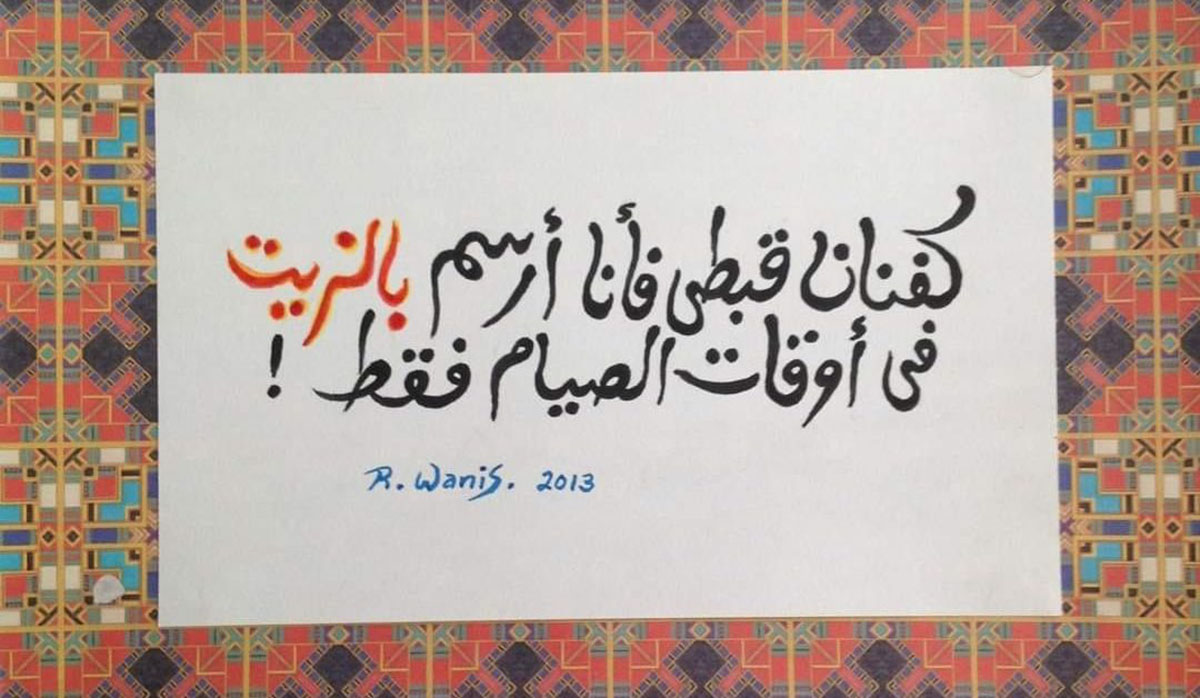 كفنان قبطى فأنا أرسم بالزيت
فى أوقات الصيام فقط !
R. Wanis. 2013